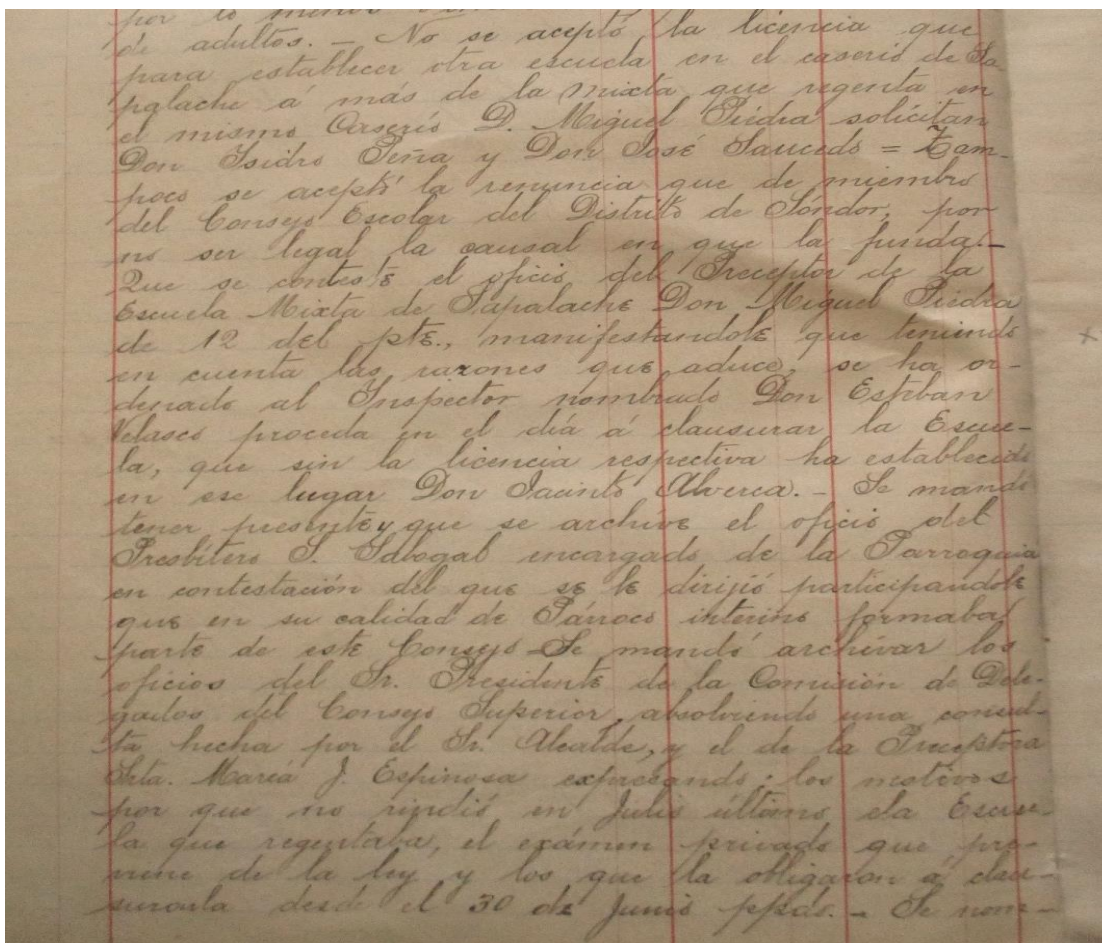 por lo menos
de adultos. – No se aceptó la licencia que
para establecer otra escuela en el caserío de Sa-
palache á más de la mixta que regenta en
el mismo Caserío D. Miguel Piedra solicitan
Don Isidro Peña y Don José Saucedo = Tam-
poco se aceptó la renuncia que de miembro
del Consejo Escolar del Distrito de Sóndor, por
no ser legal la causal en que la funda. –
Que se conteste el oficio del Preceptor de la
Escuela Mixta de Sapalache Don Miguel Piedra
de 12 del pte., manifestandole que teniendo
en cuenta las razones que aduce, se ha or-
denado al Inspector nombrado Don Esteban
Velasco proceda en el día á clausurar la Escue-
la, que sin la licencia respectiva ha establecido
en ese lugar Don Jacinto Alverca. – Se mandó
tener presente y que se archive el oficio del
Presbítero S. Sabogal encargado de la Parroquia
en contestación del que se le dirijió participandole
que en su calidad de Párroco interino formaba
parte de este Consejo – Se mandó archivar los
oficios del Sr. Presidente de la Comisión de Dele-
gados del Consejo Superior, absolviendo una consul-
ta hecha por el Sr. Alcalde, y el de la Preceptora
Srta. María J. Espinosa expresando: los motivos
por que no rindió en Julio último ela Escue-
la que regentaba, el exámen privado que pre-
viene de la ley y los que la obligaron á clau-
surarla desde el 30 de Junio ppdo. – Se nom-